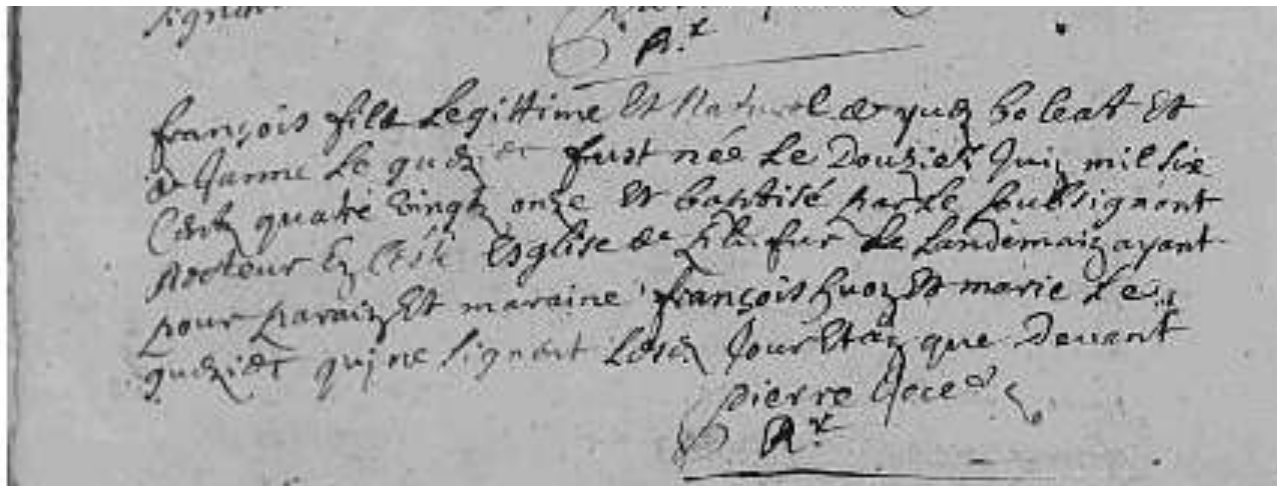 R.r
françois fils Legittime Et Naturel de yuez boleat Et
de Janne Le guezier fust née Le Douzieme Juin mil six
Centz quatre Vingtz onze Et baptisé par Le soubsignant
Recteur En Ceste Esglise de Le Landemain ayant
pour parain Et maraine françois yuon Et marie Le
guezier qui ne signent Lesdits Jour Et an que Devant
pierre
R.r